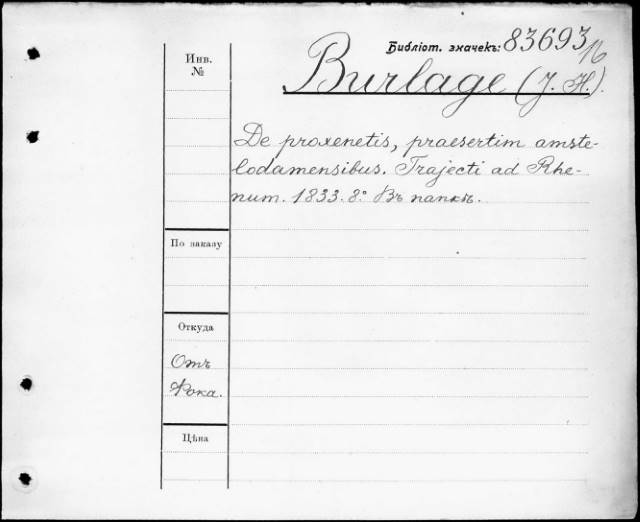 Библіот. значекъ: 83693/16
Инв. №
Burlage (J. H.).
De proxenetis, praesertim amste-
lodamensibus. Trajecti ad Rhe-
num. 1833. 8°. Въ папкѣ.
По заказу
Откуда
Отъ
Фока.
Цѣна